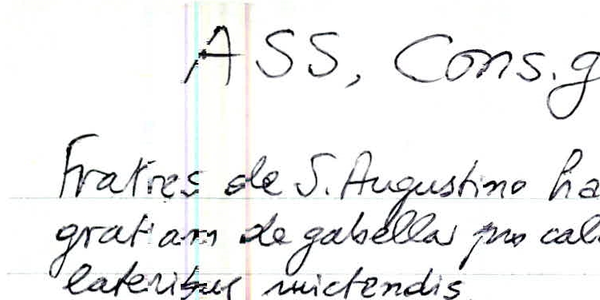 ASS, Cons. g
Fratres de S. Augustino ha
gratiam de gabella pro cal
lateribus mictendis